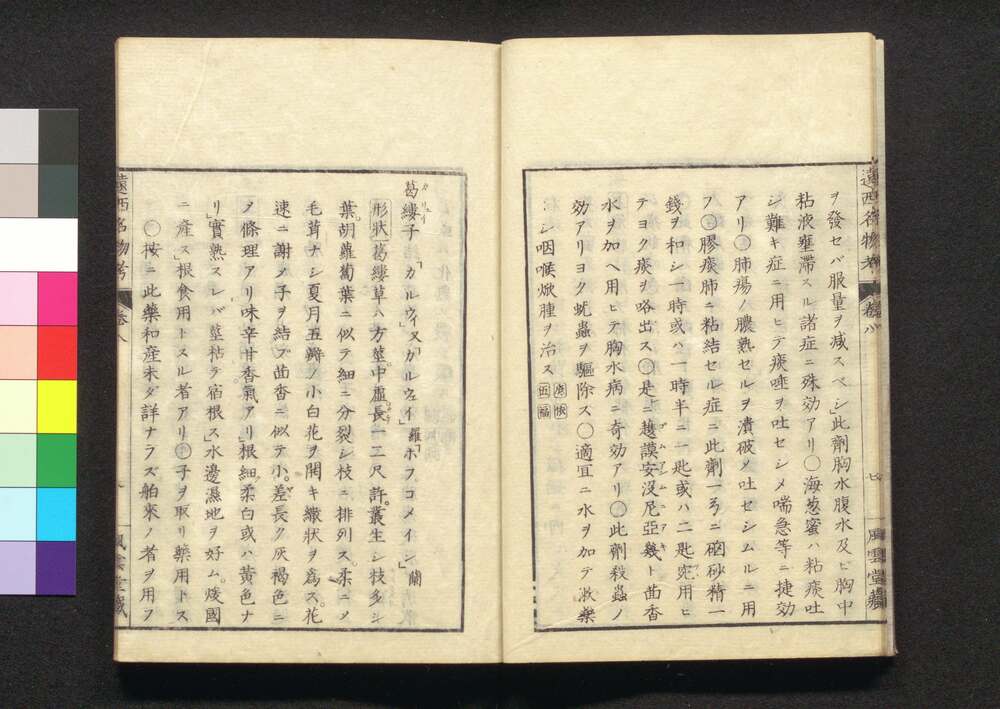 ヲ發セバ服量ヲ減スベシ」此劑胸水腹水及ヒ胸中
粘液壅滯スル諸症ニ殊効アリ○海葱蜜ハ粘痰吐
シ難キ症ニ用ヒテ痰唾ヲ吐セシメ喘急等ニ捷効
アリ○肺瘍ノ膿熟セルヲ潰破メ吐セシムルニ用
フ○膠痰肺ニ粘結セル症ニ此劑一ニ硇砂精一
錢ヲ和シ一時或ハ一時半ニ一匙或ハ二匙宛用ヒ
テヨク痰ヲ咯出ス○是ニ越謨安没尼亞幾ト茴香
水ヲ加ヘ用ヒテ胸水病ニ奇効アリ○此劑殺蟲ノ
効アリヨク蚘蟲ヲ驅除ス○適宜ニ水ヲ加テ漱藥
シ咽喉焮腫ヲ治ス
遠西名物考
卷八
七
風雲堂藏
葛縷子「カルウィス」カルウェイ」羅「ホフコメイン」蘭
形状葛縷草ハ方莖中虚長一二尺許叢生シ枝多シ
葉胡蘿蔔葉ニ似テ細ニ分裂シ枝ニ排列ス。柔ニメ
毛茸ナシ夏月五瓣ノ小白花ヲ開キ繖狀ヲ爲ス。花
速ニ謝メ子ヲ結ブ茴香ニ似テ小。差長ク灰褐色ニ
メ條理アリ味辛甘香氣アリ」根細柔白或ハ黄色ナ
リ」實熟スレバ莖枯テ宿根ス」水邊濕地ヲ好ム。
ニ產ス」根食用トスル者アリ○子ヲ取リ藥用トス
○按ニ此藥和産未ダ詳ナラズ舶來ノ者ヲ用フ
遠西名物考
卷八
風雲堂藏